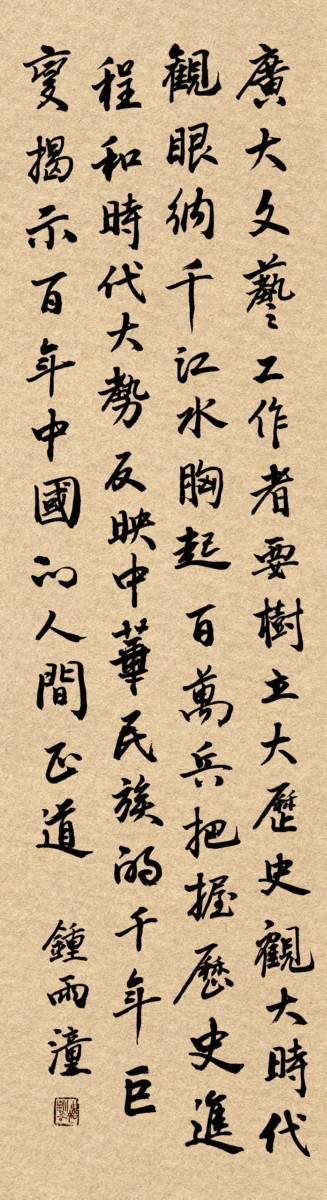 廣大文藝工作者要樹立大歷史觀大時代
觀眼納千江水胸起百萬兵把握歷史進
程和時代大勢反映中華民族的千年巨
變揭示百年中國的人間正道
鍾雨潼